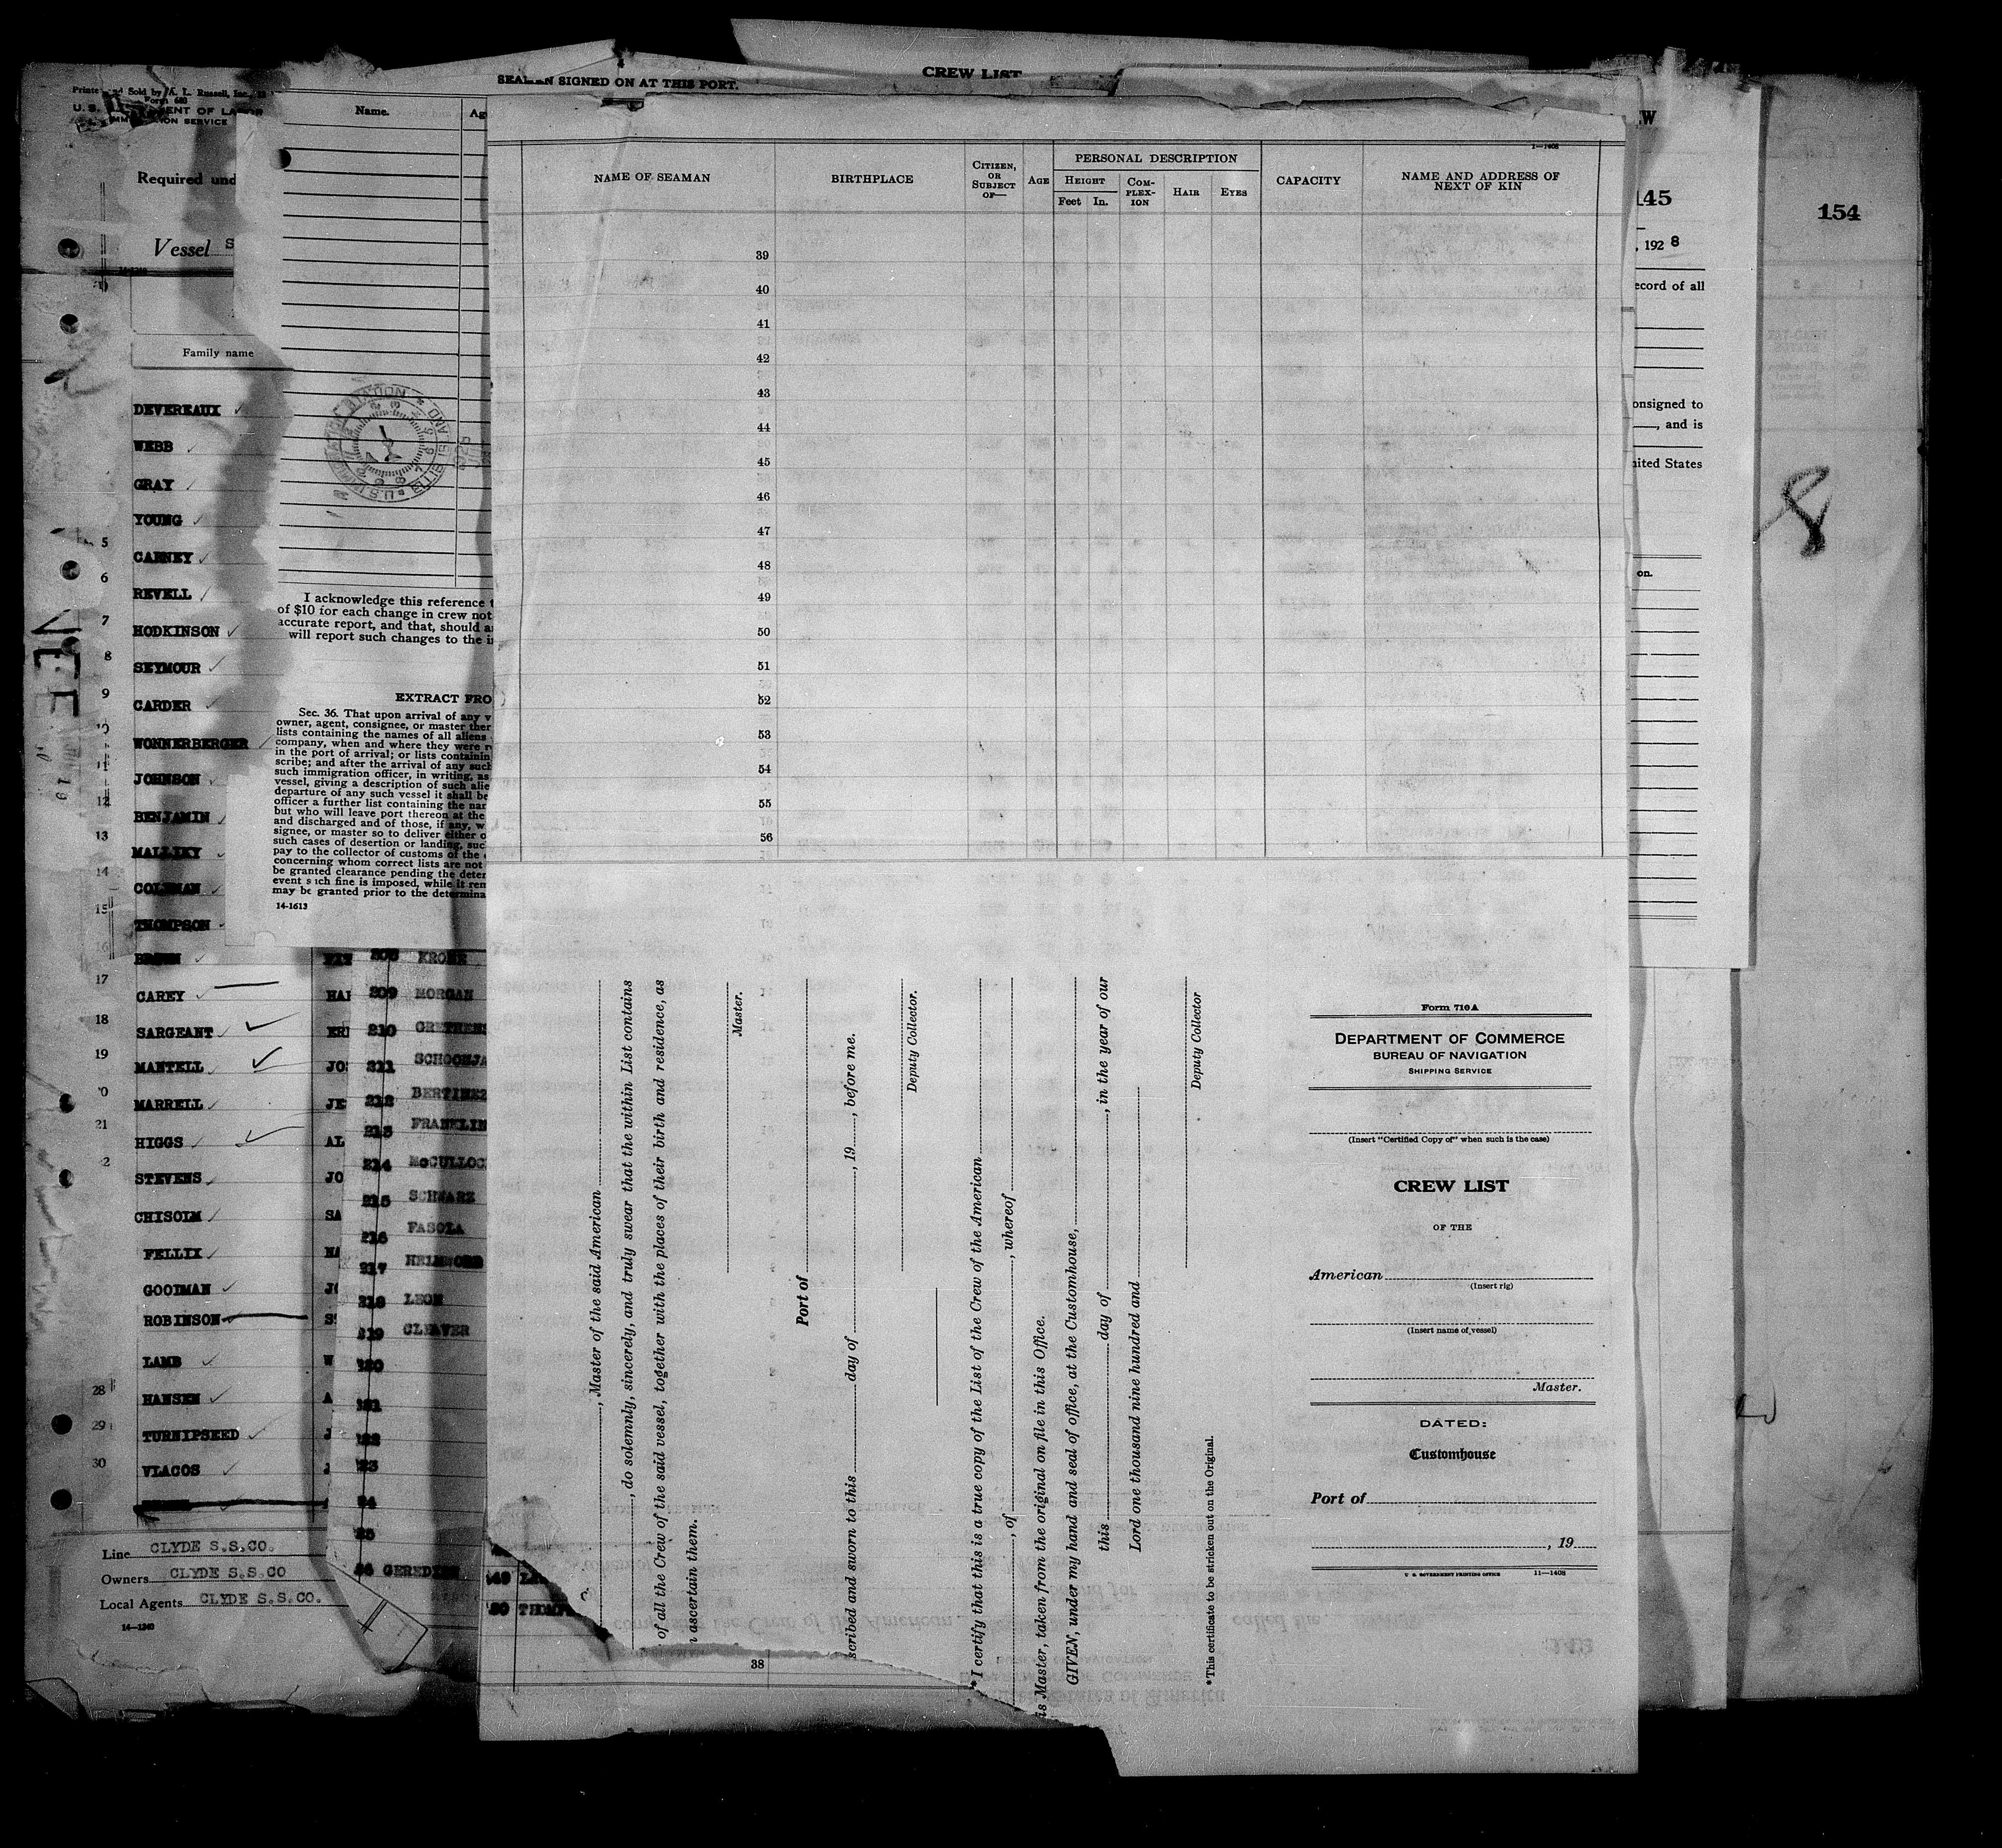 CREW LIST
SEAMEN SIGNED ON AT THIS PORT.
Name.
Form 680
U.S.
Required und
Vessel S
14-1240
Family name
DEVEREAUX
WEBB
GRAY
YOUNG
5 CARNEY
6 REVELL
7 HODKINSON
8 SEYMOUR
9 CARDER
WONNERBERGER
11 JOHNSON
12 BENJAMIN
13 MALLIKY
14 COLEMAN
15 THOMPSON
16 BROWN
17 CAREY HAI
18 SARGEANT ERI
19 MANTELL JO
0 MARRELL JE
21 HIGGS AL
2 STEVENS JO
CHISOLM SA
FELLIX
GOODMAN JO
ROBINSON S
LAMB W
28 HANSEN A
29 TURNIPSEED
30 VLACOS
Line CLYDE S.S.CO.
Owners CLYDE S.S.CO
Local Agents CLYDE S.S.CO.
14—1240
I acknowledge this reference t
of $10 for each change in crew not
accurate report, and that, should a
will report such changes to the i
EXTRACT FRO
Sec. 36. That upon arrival of any v
owner, agent, consignee, or master ther
lists containing the names of all aliens
company, when and where they were r
in the port of arrival; or lists containin
scribe; and after the arrival of any such
such immigration officer, in writing, as
vessel, giving a description of such alie
departure of any such vessel it shall be
officer a further list containing the nar
but who will leave port thereon at the
and discharged and of those, if any, w
signee, or master so to deliver either o
such cases of desertion or landing, suc
pay to the collector of customs of the
concerning whom correct lists are not
be granted clearance pending the deter
event such fine is imposed, while it rem
may be granted prior to the determina
14-1613
KRONE
209 MORGAN
210
211 SCHOONJA
212 BERTINEZ
213 FRANKLIN
214 McCULLOC
215 SCHWARZ
216 FASOLA
217
218 LEON
219 CLEAVER
THOMP
38
1—1408
NAME OF SEAMAN
BIRTHPLACE
CITIZEN, OR SUBJECT OF—
AGE
PERSONAL DESCRIPTION
HEIGHT
Feet In.
COM-PLEX-ION
HAIR
EYES
CAPACITY
NAME AND ADDRESS OF NEXT OF KIN
39
40
41
42
43
44
45
46
47
48
49
50
51
52
53
54
55
56
, Master of the said American
, do solemnly, sincerely, and truly swear that the within List contains
of all the Crew of the said vessel, together with the places of their birth and residence, as
ascertain them.
Master.
Port of
scribed and sworn to this day of , 19 , before me.
Deputy Collector.
*I certify that this is a true copy of the List of the Crew of the American
, of , whereof
is Master, taken from the original on file in this Office.
GIVEN, under my hand and seal of office, at the Customhouse,
this day of , in the year of our
Lord one thousand nine hundred and
Deputy Collector
*This certificate to be stricken out on the Original.
Form 710A
DEPARTMENT OF COMMERCE
BUREAU OF NAVIGATION
SHIPPING SERVICE
(Insert "Certified Copy of" when such is the case)
CREW LIST
OF THE
American
(Insert rig)
(Insert name of vessel)
Master.
DATED:
Customhouse
Port of
, 19
U. S. GOVERNMENT PRINTING OFFICE 11—1408
EW
145
, 192 8
ecord of all
onsigned to
, and is
nited States
on.
154
8